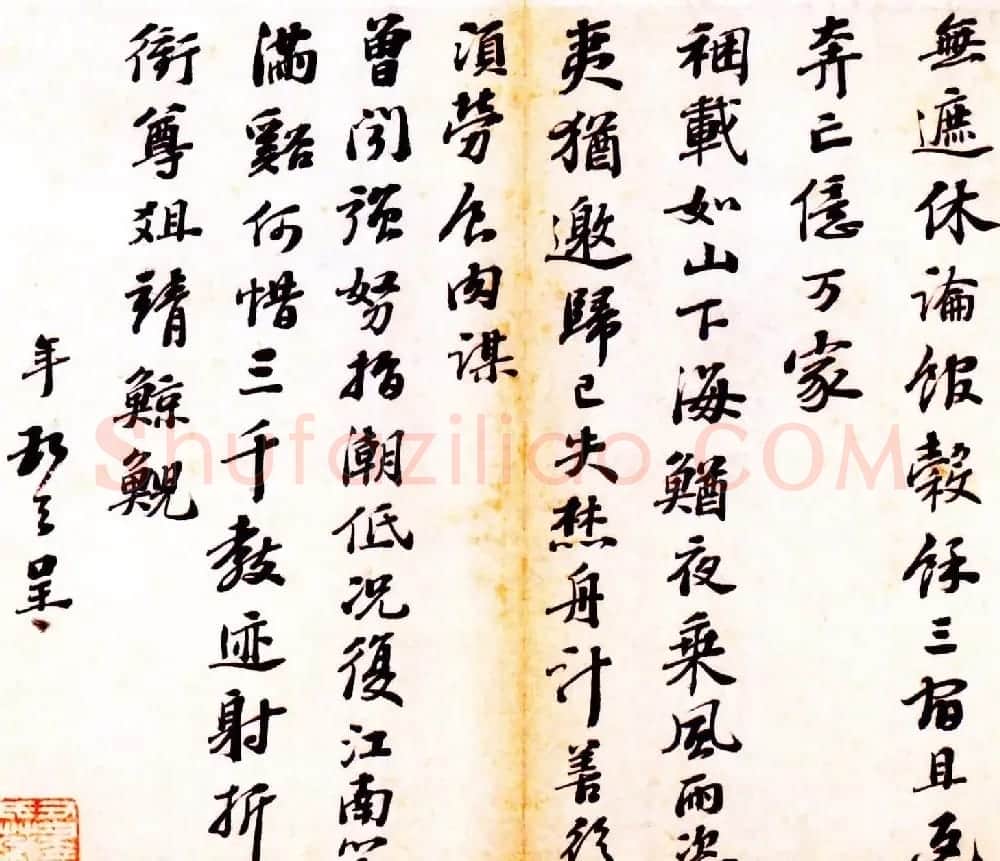 無遮休論館穀餘三宿且
奔亡億万家
稇載如山下海鰌夜乗風雨
夷猶邀歸已失焚舟計善後
須勞食肉謀
曾聞强弩指潮低况復江南
滿谿何惜三千教迹射折
衝尊俎請鯨鯢
年 呈
Shufaziliao.COM